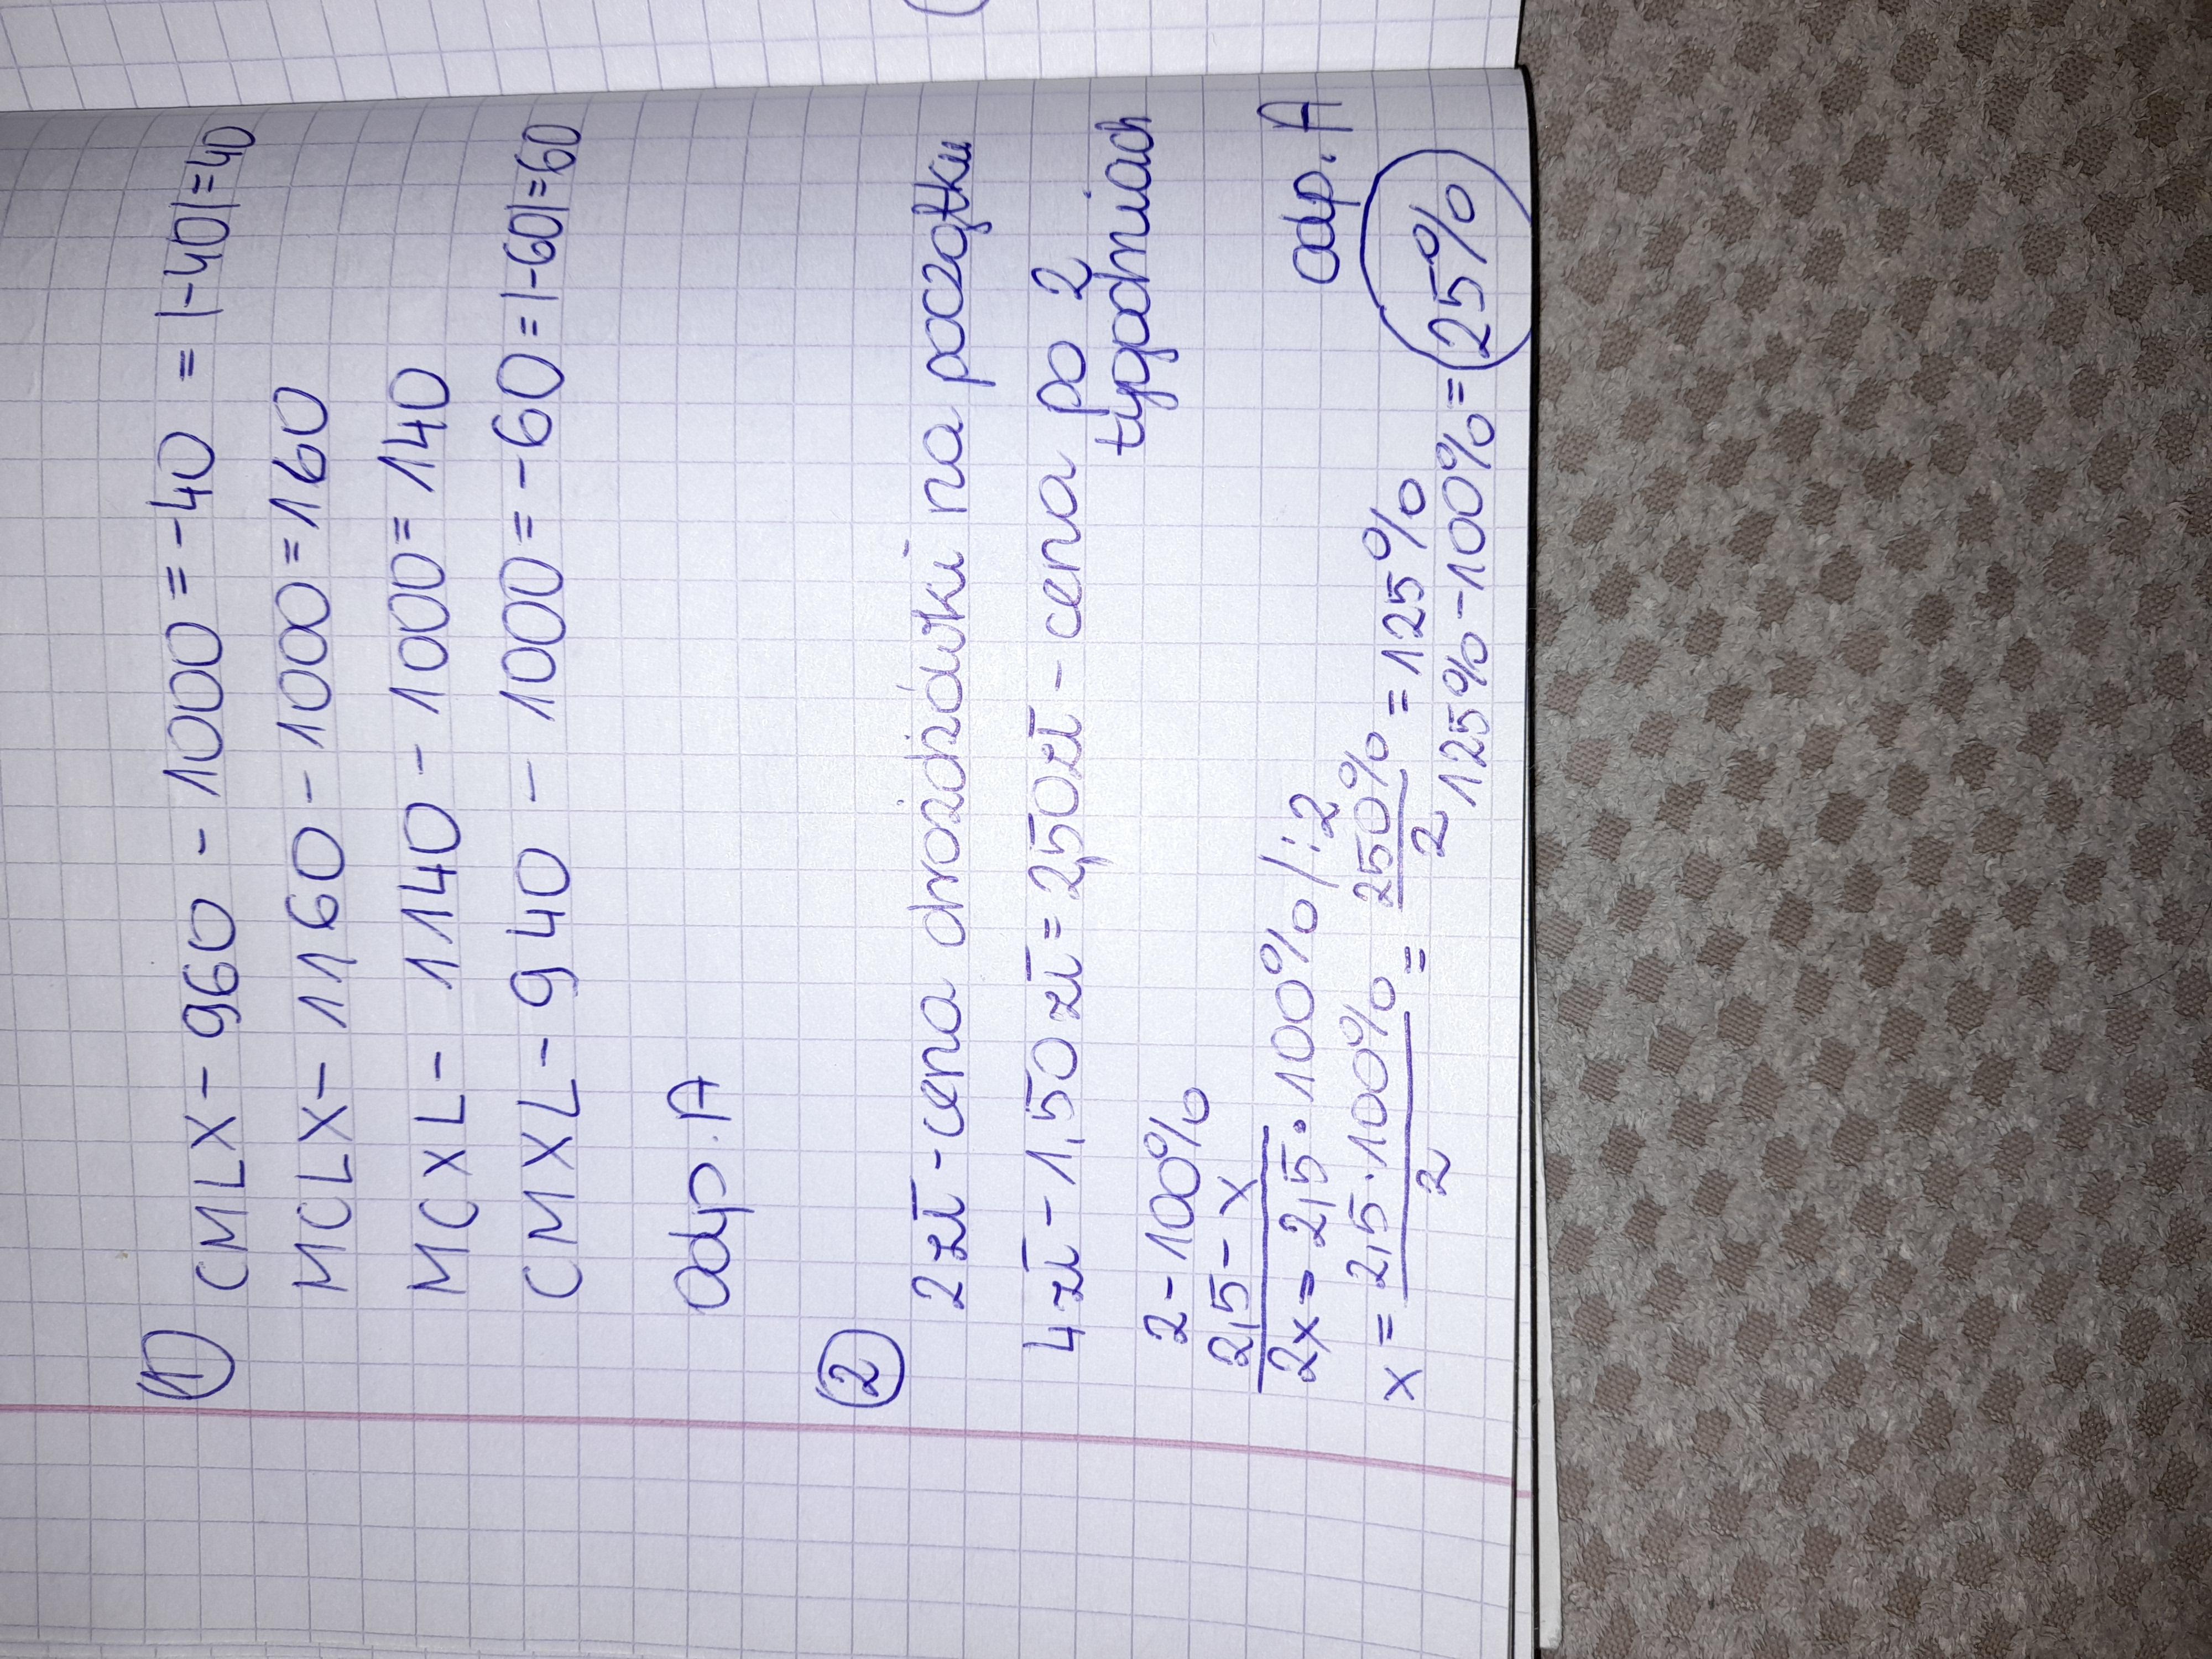 1 CMLX - 960 - 1000 = -40 = |-40| = 40
MCLX - 1160 - 1000 = 160
MCXL - 1140 - 1000 = 140
CMXL - 940 - 1000 = -60 = |-60| = 60
odp. A
2 2 zł - cena drożdżówki na początku
4 zł - 1,50 zł = 2,50 zł - cena po 2
tygodniach
2 - 100%
2,5 - x
2x = 2,5 · 100% / :2
odp. A
x = 2,5 · 100% / 2 = 250% / 2 = 125%
125% - 100% = 25%